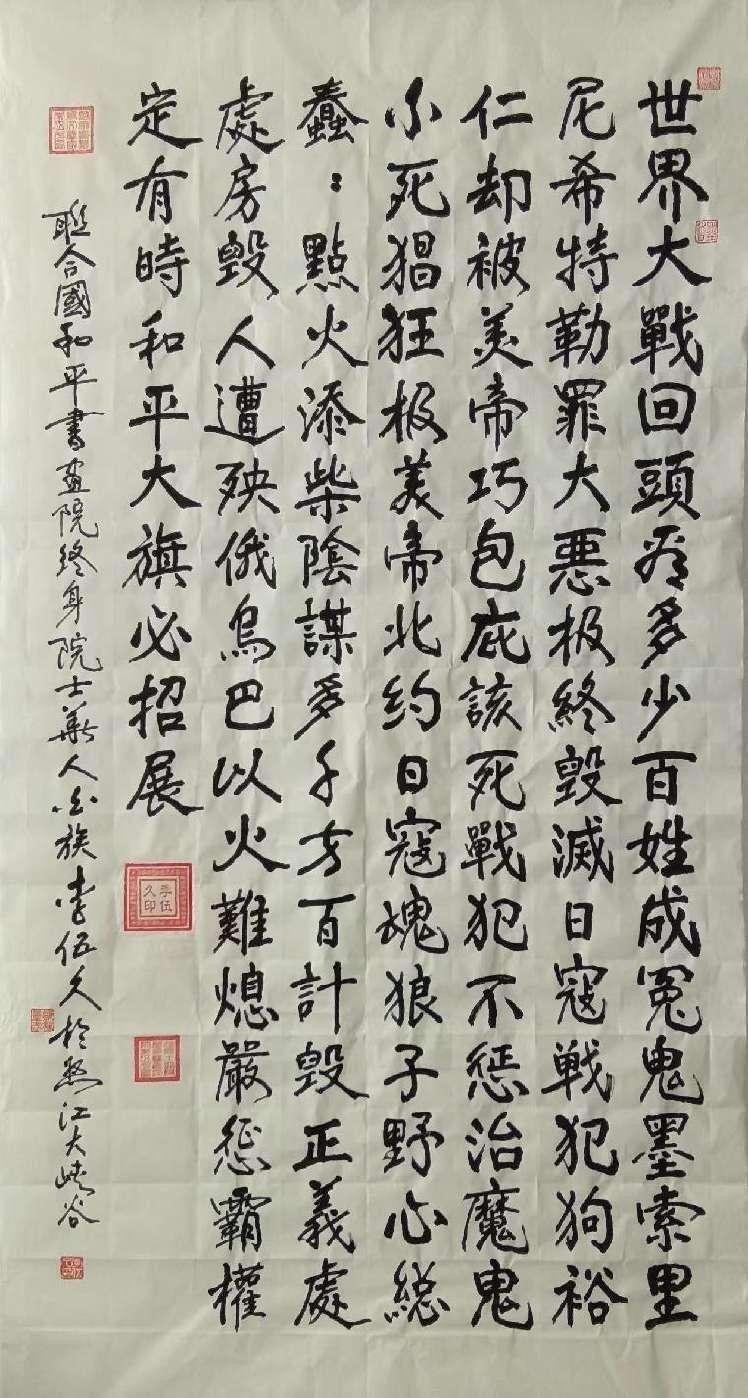 世界大戰回頭看多少百姓成冤鬼墨索里
尼希特勒罪大悪极終毁滅日寇戦犯狗裕
仁却被美帝巧包庇該死戰犯不惩治魔鬼
不死猖狂极美帝北约日寇魂狼子野心総
蠢〻點火添柴陰謀多千方百計毁正義處
處房毁人遭殃俄烏巴以火難熄嚴惩霸權
定有時和平大旗必招展
聯合國和平書畫院终身院士華人白族李伍久於怒江大峡谷
李伍
久印